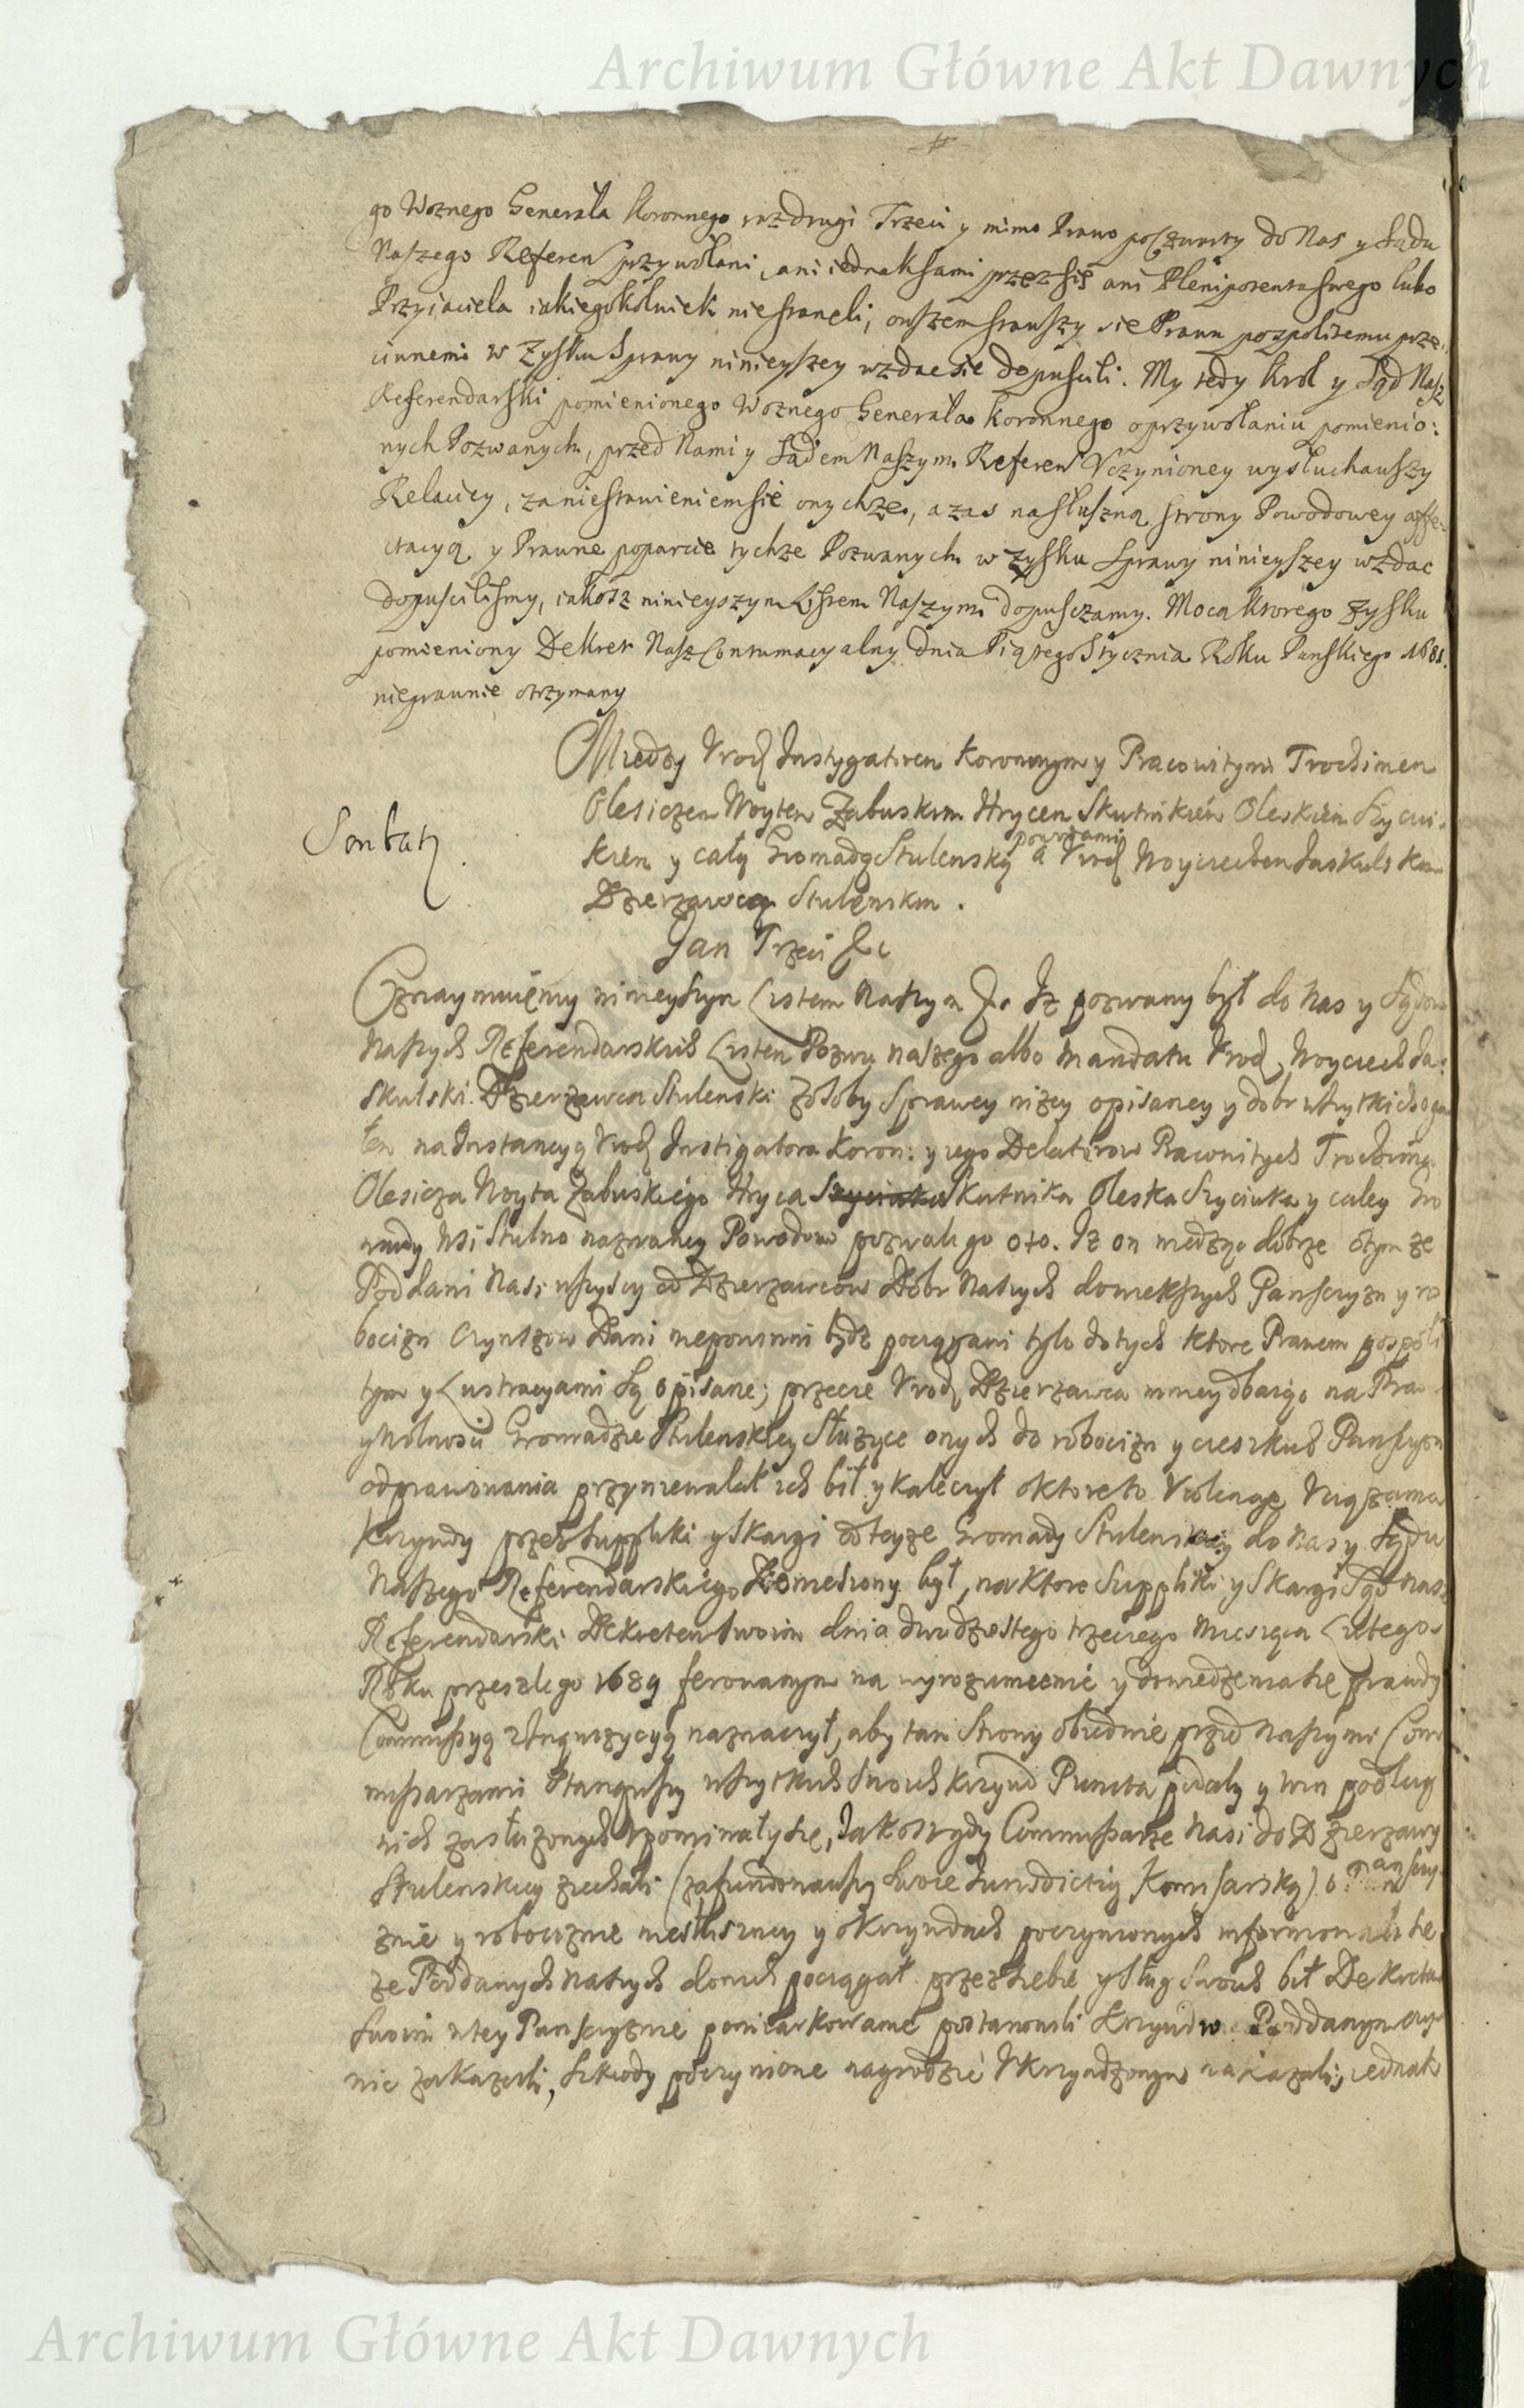 Archiwum Główne Akt Dawnych
go Woznego Generała Koronnego raz drugi Trzeci y mimo Prawo poczwarty do Nas y Sądu
Naszego Referen przywołani, ani iednak sami przez się ani Plenipotenta swego lubo
Przyiaciela iakiegokolwiek nie staneli, owszem stawszy się Prawu pospolitemu prze-
ciwnemi w Zysku Sprawy ninieyszey wzdać się dopuścili. My tedy Krol y Sąd Nasz
Referendarski pomienionego Woznego Generała Koronnego o przywołaniu pomienio:
nych Pozwanych, przed Nami y Sądem Naszym Referen Vczynioney wysłuchawszy
Relaciey, za niestawieniem się onychże, a zas na słuszną strony Powodowey affe-
ctacyą y Prawne poparcie tychże Pozwanych w zysku Sprawy ninieyszey wzdac
dopuscilismy, iakosz ninieyszym Listem Naszym dopusczamy. Mocą ktorego zysku
pomieniony Dekret Nasz Contumacyalny dnia Piątego Stycznia Roku Panskiego 1681.
nieprawnie otrzymany
Między Vrod Instygatorem Koronnym y Pracowitymi Trochimem
Olesiczem Woytem Zabuskim Hrycem Skutnikiem Oleskiem Szyciu-
kiem y całą Gromadą Stulenską powodami a Vrod Woyciechem Jaskulskim
Dzierzawcą Stulenskim.
Jan Trzeci &c
Oznaymuiemy ninieyszym Listem Naszym &c Iz pozwany był do Nas y Sądow
Naszych Referendarskich Listem Pozwu naszego albo Mandatu Vrod Woyciech Ja-
skulski Dzierzawca Stulenski z osoby Sprawey nizey opisaney y dobr wszytkich ogu
łem na Instancyą Vrod Instigatora Koron: y iego Delatorow Pracowitych Trochima
Olesicza Woyta Zabuskiego Hryca Skutnika Oleska Szyciuka y całey Gro
mady Wsi Stulno nazwaney Powodow pozwali go oto. Iz on wiedząc dobrze o tym ze
Poddani Nasi wszyscy od Dzierzawcow Dobr Naszych do wiekszych Panszczyzn y ro
bocizn Czynszow Dani niepowinni bydz pociągani tylo do tych ktore Prawem pospoli
tym y Lustracyami są opisane; przecie Vrod Dzierzawca nie dbaiąc na Pra
y Wolnosci Gromadzie Stulenskiey słuzące onych do robocizn y cieszkich Panszczyzn
odprawowania przyniewalał ich bił y kaleczył o ktore to Violencye Vciązama
Krzywdy przez suppliki y skargi od teyze Gromady Stulenskiey do Nas y Sądu
Naszego Referendarskiego doniesiony był, na ktore Suppliki y Skargi Sąd nasz
Referendarski Dekretem swoim dnia dwudziestego trzeciego Miesiąca Lutego
Roku przeszlego 1689 ferowanym na wyrozumienie y dowiedzenia się prawdy
Commissyą z Inquizycyą naznaczył, aby tam Strony obiedwie przed Naszymi Com
missarzami stanąwszy wszytkich swoich krzywd Puncta podały y win podług
nich zasłuzonych vpominały się, Jakosz gdy Commissarze Nasi do Dzierzawy
Stulenskiey ziechali (zafundowawszy swoie Jurisdictią Komisarską) o Panszczy-
znie y robociznie niesłuszney y o krzywdach poczynionych informowali się
ze Poddanych Naszych do nich pociągał przez siebie y sług swoich bił Dekretem
swoim w tey Panszczyznie pomiarkowanie postanowili krzywd Poddanym czy
nic zakazali, szkody poczynione nagrodzić Vkrzywdzonym nakazali, iednak
Archiwum Główne Akt Dawnych